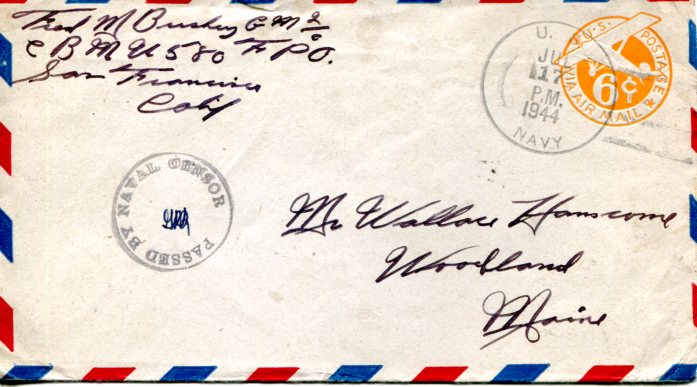 Fred M Bushey G M 2/c
C B M U 580 F P O.
San Francisco
Calif
U.
17
P.M.
1944
NAVY
U.S. POSTAGE
6¢
VIA AIR MAIL
PASSED BY NAVAL CENSOR
Mr Wallace Hanscome
Woodland
Maine